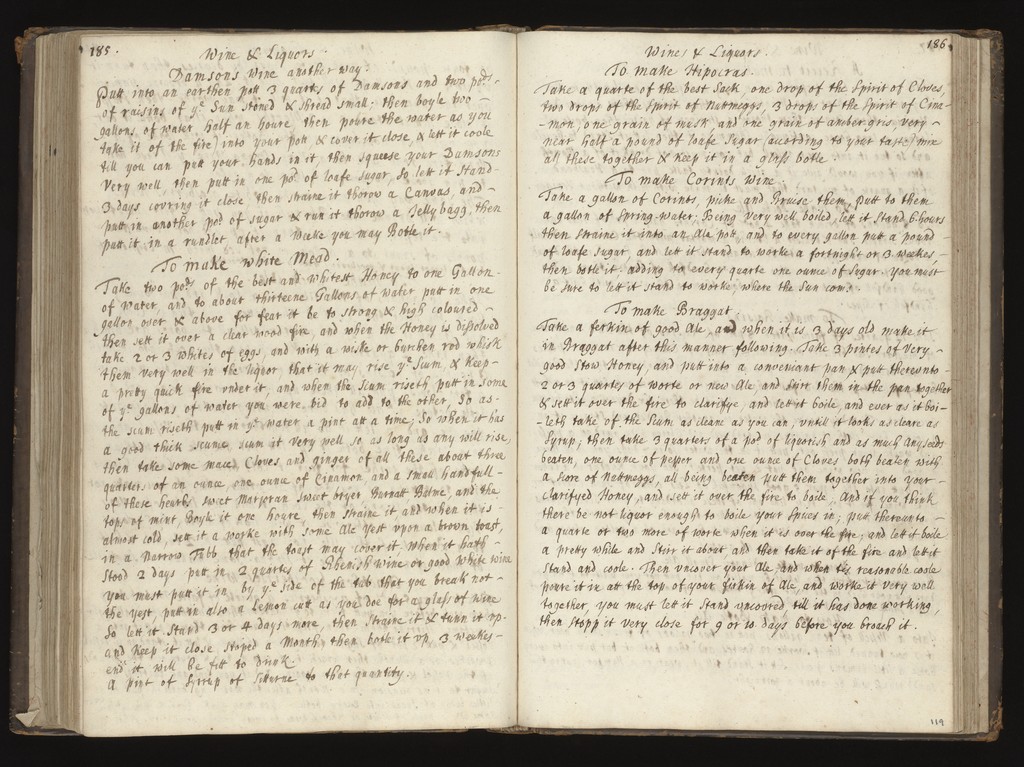 185.
Wine & Liquors.
Damsons Wine another way.
Putt into an earthen pott 3 quarts of Damsons and two pod.
of raisins of ye. Sun stoned & shread small; then boyle two
gallons of water half an houre, then poure the water as you
take it of the fire, into your pott, & cover it close, & lett it coole
till you can putt your hands in it, then squeese your Damsons
very well, then putt in one pod. of loafe sugar, so lett it stand
3 days covring it close then straine it thorow a Canvas, and
putt in another pod of sugar & run it thorow a Jelly bagg, then
putt it in a rundlet, after a weeke you may Botle it.
To make white Mead.
Take two pods. of the best and whitest Honey to one Gallon
of water, and to about thirteene Gallons of water putt in one
gallon over & above for fear it be to strong & high coloured
then sett it over a clear wood fire, and when the Honey is dissolved
take 2 or 3 whites of eggs, and with a wiske or burchen rod whisk
them very well in the liquor, that it may rise ye. Scum, & keep
a pretty quick fire under it, and when the Scum riseth putt in some
of ye. gallons of water you were bid to add to the other, so as
the scum riseth putt in ye. water a pint att a time; So when it has
a good thick scume scum it very well so as long as any will rise,
then take some maces, Cloves, and ginger of all these about three
quarters of an ounce, one ounce of Cinamon, and a small handfull
of these hearbs, sweet Marjeran Sweet bryer Burnatt Balme, and the
tops of mint, Boyle it one houre, then straine it and when it is
almost cold, sett it a worke with some Ale yest upon a brown toast,
in a Narrow Tubb that the toast may cover it, when it hath
stood 2 days putt in 2 quartes of Rhenish wine or good white wine
you must putt it in by ye. side of the tub that you break not
the yest, putt in also a Lemon cutt as you doe for a glass of wine
So lett it stand 3 or 4 days more, then straine it & tunn it up.
and keep it close stoped a Month, then botle it up, 3 weekes
end it will be fitt to drink.
A pint of Syrup of to that quantity.
186
Wines & Liquors.
To make Hipocras.
Take a quarte of the best Sack, one drop of the Spirit of Cloves,
two drops of the Spirit of Nuttmeggs, 3 drops of the Spirit of Cina-
-mon, one grain of musk, and one grain of ambergris, very
near half a pound of loafe sugar (acording to your taste) mix
all these together & keep it in a glass botle.
To make Corints Wine.
Take a gallon of Corints, picke and Bruise them, putt to them
a gallon of Spring water; Being very well boiled, lett it stand 6 hours
then straine it into an Ale pott, and to every gallon putt a pound
of loafe sugar, and lett it stand to worke a fortnight or 3 weekes,
then botle it, adding to every quarte one ounce of sugar. You must
be sure to lett it stand to worke, where the Sun com.
To make Braggat.
Take a ferkin of good Ale, and when it is 3 days old make it
in Braggat after this manner following. Take 3 pintes of very
good Stow Honey, and putt into a conveniant pan, & putt thereunto
2 or 3 quartes of worte or new Ale, and stirr them in the pan together
& sett it over the fire to clarifye, and lett it boile, and ever as it boi-
-leth take of the Scum as cleane as you can, untill it looks as cleare as
Syrup; then take 3 quarters of a pod of liquorish and as much Anyseeds
beaten, one ounce of pepper and one ounce of Cloves both beaten with
a score of Nuttmeggs, all being beaten putt them together into your
Clarifyed Honey, and sett it over the fire to boile, And if you think
there be not liquor enough to boile your Spices in; putt thereunto
a quarte or two more of worte when it is over the fire; and lett it boile
a pretty while and Stirr it about, and then take it of the fire and lett it
Stand and coole. Then uncover your Ale, and when tis reasonable coole
poure it in att the top of your firkin of Ale, and worke it very well
together, you must lett it Stand uncovred, till it has done working,
then Stopp it very close for 9 or 10 days before you broach it.
119